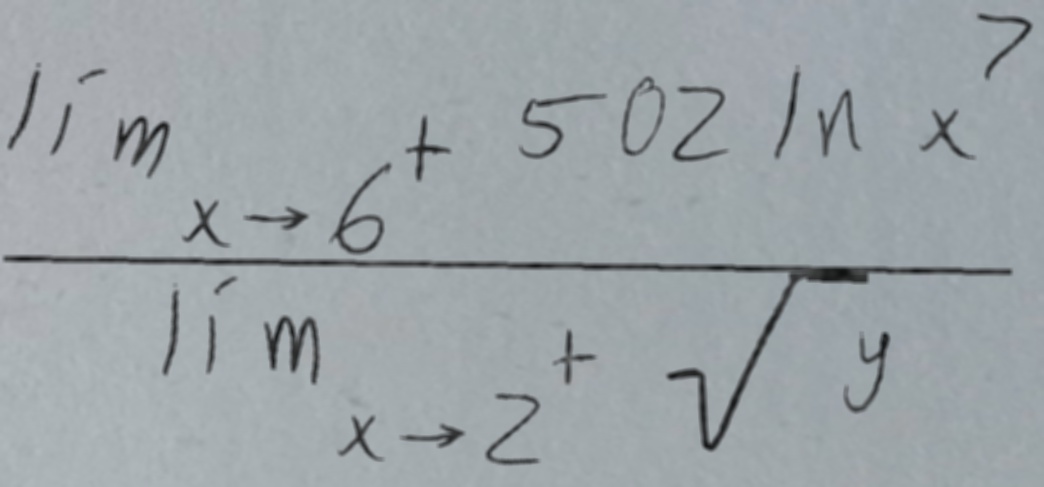 lim x→6⁺ 502 ln x⁷
lim x→2⁺ √y